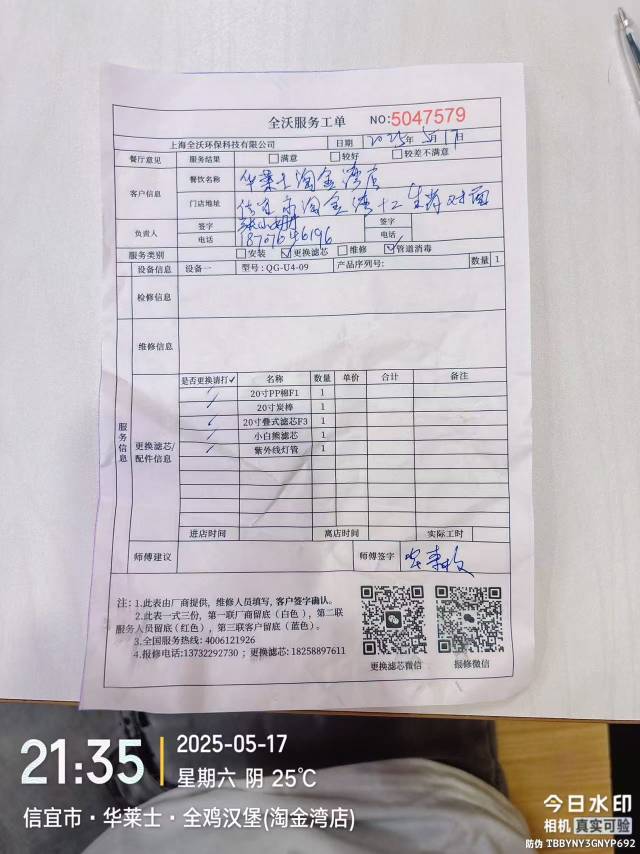 全沃服务工单 NO:5047579
上海全沃环保科技有限公司 日期 2025年5月17日
餐厅意见 服务结果 满意 较好 较差不满意
客户信息 餐饮名称 华莱士淘金湾店
门店地址 信宜市淘金湾十二生肖对面
负责人 签字 签字
电话 18707646196 电话
服务类别 安装 更换滤芯 维修 管道消毒
设备信息 设备一 型号:QG-U4-09 产品序列号: 数量 1
检修信息
维修信息
服务信息
更换滤芯/配件信息
是否更换请打✓ 名称 数量 单价 合计 备注
✓ 20寸PP棉F1 1
✓ 20寸炭棒 1
✓ 20寸叠式滤芯F3 1
✓ 小白熊滤芯 1
✓ 紫外线灯管 1
进店时间 离店时间 实际工时
师傅建议 师傅签字
注:1.此表由厂商提供,维修人员填写,客户签字确认。
2.此表一式三份,第一联厂商留底(白色),第二联
服务人员留底(红色),第三联客户留底(蓝色)。
3.全国服务热线:4006121926
4.报修电话:13732292730 ; 更换滤芯:18258897611
更换滤芯微信 报修微信
21:35 2025-05-17
星期六 阴 25℃
信宜市·华莱士·全鸡汉堡(淘金湾店)
今日水印
相机 真实可验
防伪 TBBYNY3GNYP692